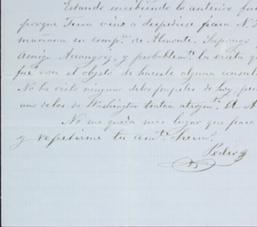 Estando escribiendo lo anterior
porque vino a despedirse para N.
mañana en comp.ª de Almonte. Supongo
Amigo Arrangoiz, y probablem.te la visita
fué con el objeto de hacerle alguna
No he visto ninguno de los papeles de hoy,
uno de los de Washington
No me queda mas lugar que para
y repetirme tu am.º
Pedro